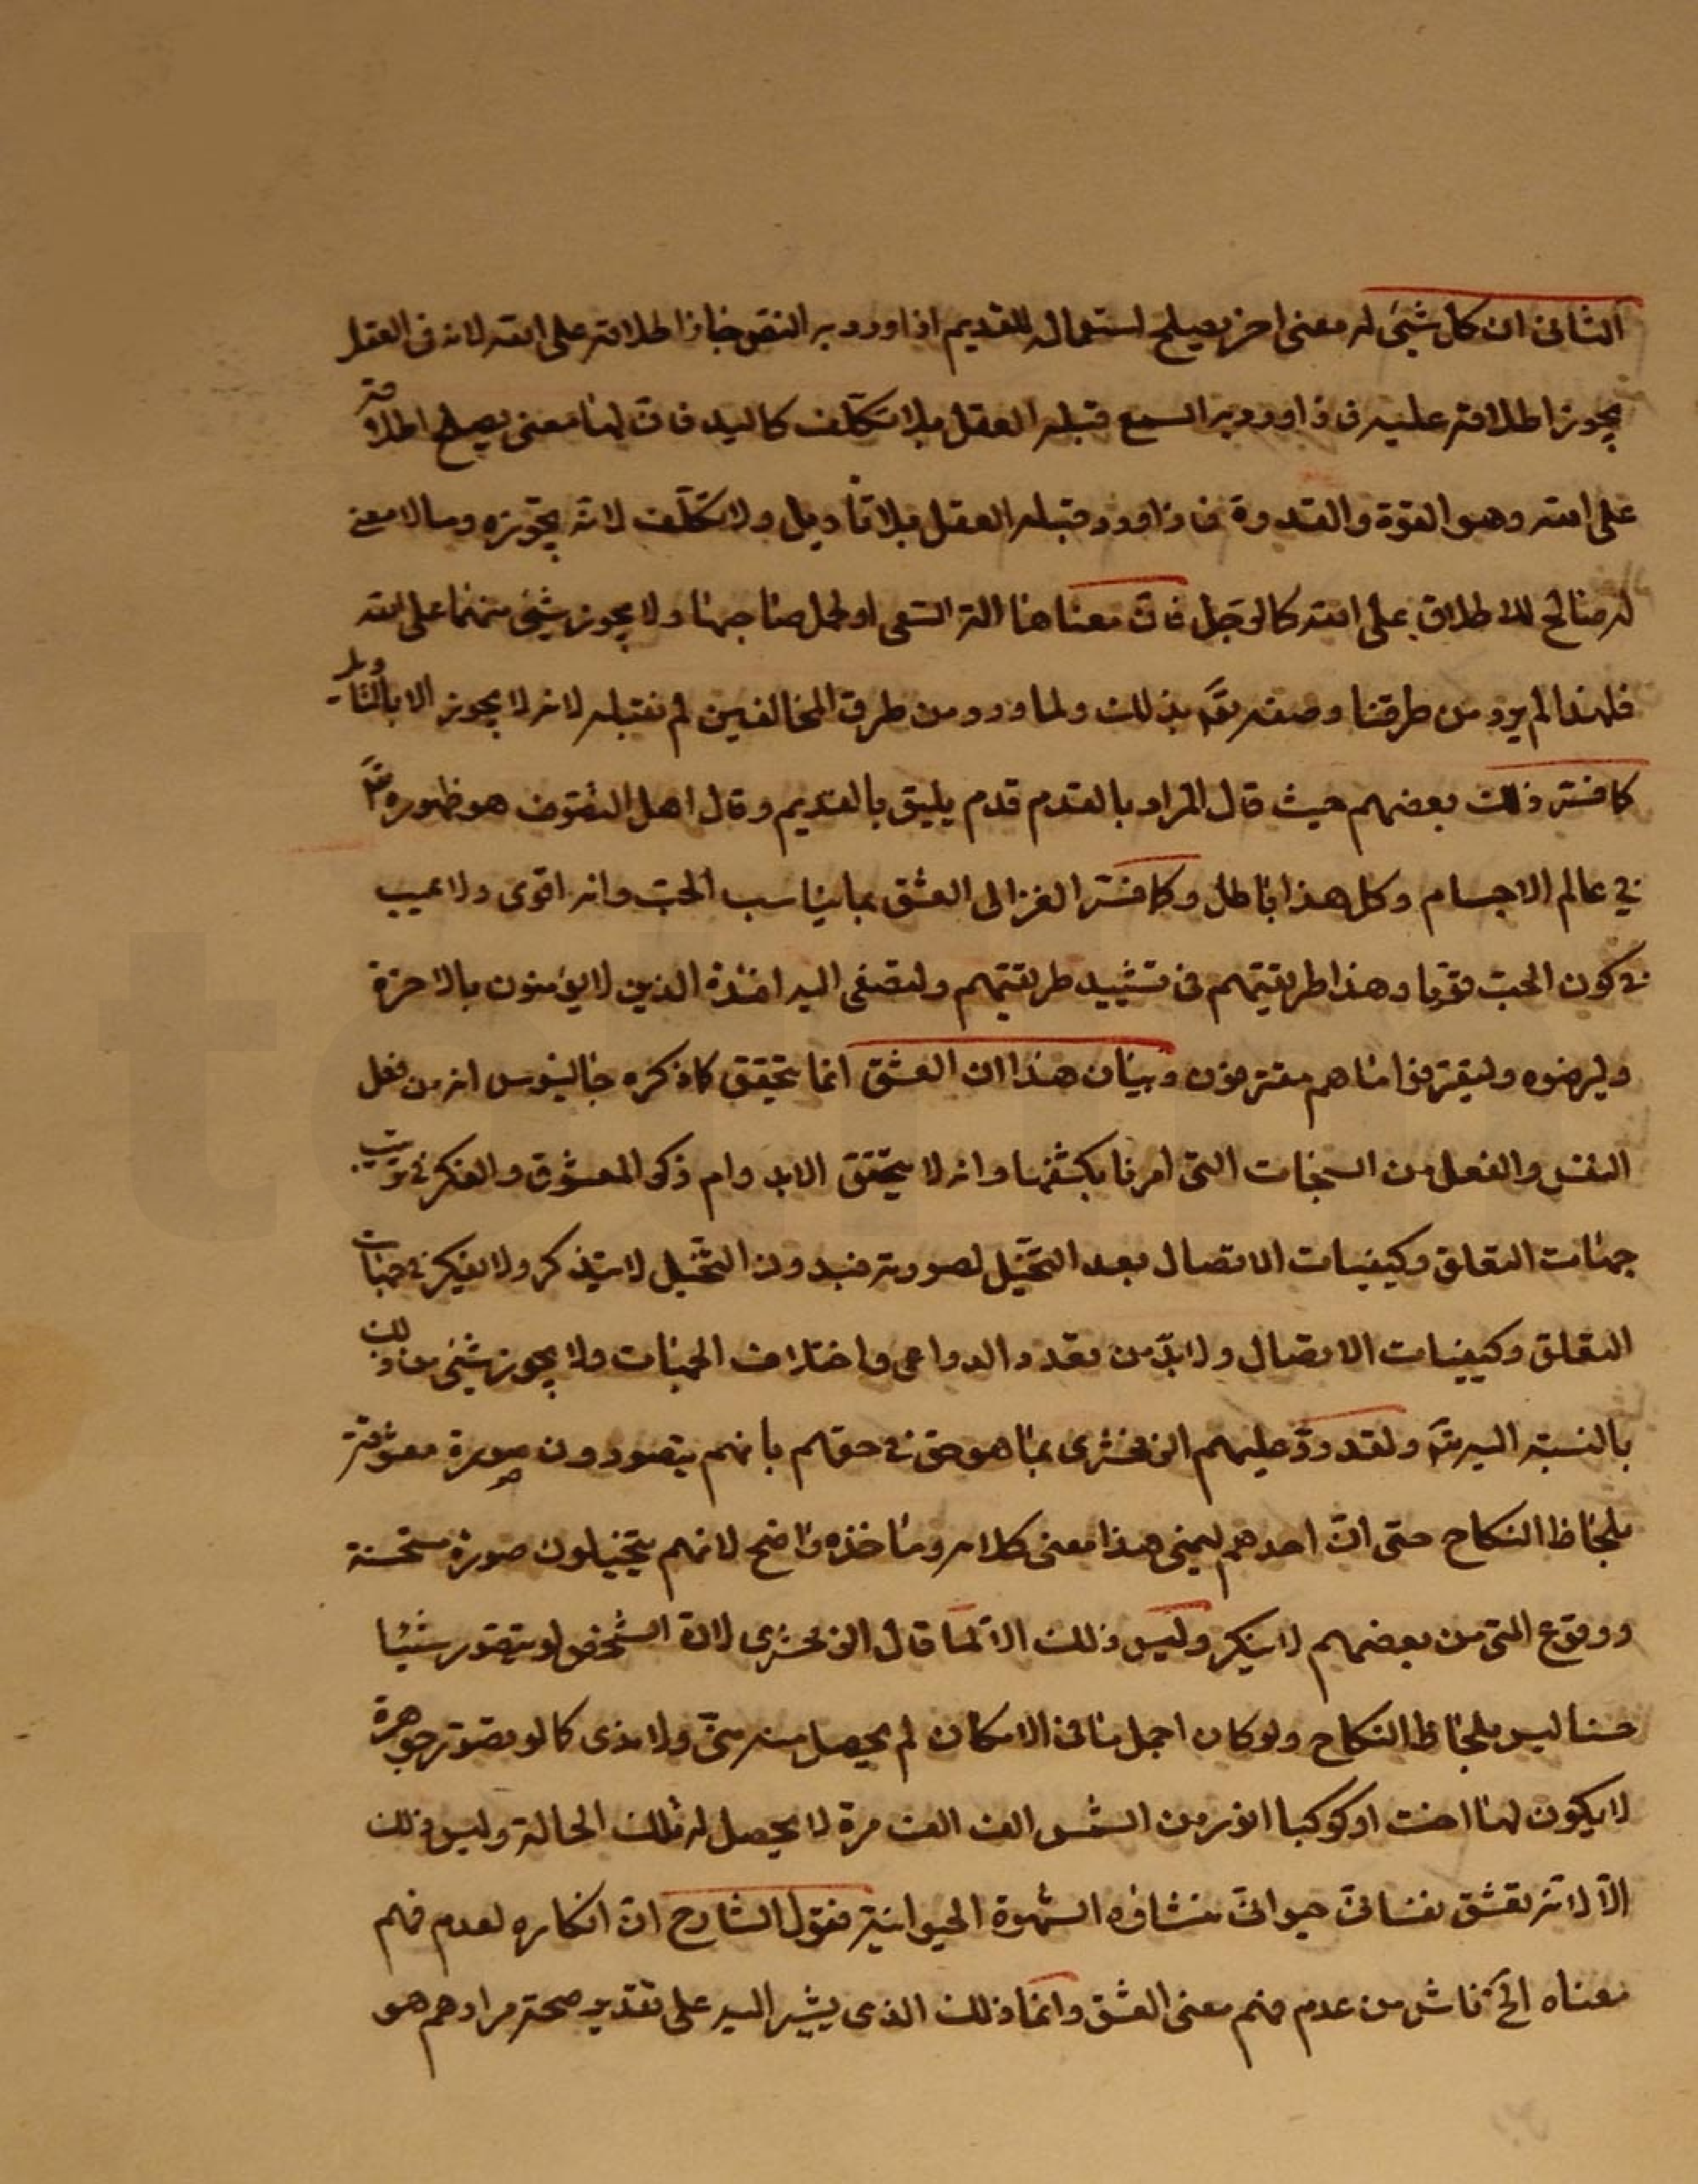 الثانى ان كل شيئ له معنى اخر يصلح استعماله للقديم اذا ورد به النقل جاز اطلاقه على الله لانه فى العقل
يجوز اطلاقه عليه فاذا ورد به السمع قبله العقل بلا تكلّف كاليد فان لها معنى يصلح اطلاقه
على الله وهى القوة والقدرة فاذا ورد قبله العقل بلا تأويل ولا تكلّف لانه يجوّزه وما لا معنى
له صالح للاطلاق على الله كالرجل فان معناها الة السعى او لحمل صاحبها ولا يجوز شيئ منهما على الله
فلهذا لم يرد من طرقنا وصفه تعالى بذلك ولما ورد من طرق المخالفين لم نقبله لانه لا يجوز الا بالتاويل
كما فسّر ذلك بعضهم حيث قال المراد بالقدم قدم يليق بالقديم وقال اهل التصوف هو ظهوره
فى عالم الاجسام وكل هذا باطل وكما فسّر الغزالى العشق بما يناسب الحب وانه اقوى ولا عيب
فى كون الحب قويا وهذا طريقتهم فى تشييد طريقتهم ولتصغى اليه افئدة الذين لا يؤمنون بالاخرة
وليرضوه وليقترفوا ما هم مقترفون وبيان هذا ان العشق انما يتحقق كما ذكره جالينوس انه من فعل
النفس والفعل من السبحات التى امرنا بكشفها وانه لا يتحقق الا بدوام ذكر المعشوق والفكر فى ترتيب
جهات التعلق وكيفيات الاتصال بعد التخيّل لصورته فبدون التخيّل لا يتذكر ولا تفكر فى جهات
التعلق وكيفيات الاتصال ولا بدّ من تعدد الدواعى واختلاف الجهات ولا يجوز شيئ من ذلك
بالنسبة اليه تعالى ولقد ردّ عليهم الزمخشرى بما هو حق فى حقهم بانهم يتصورون صورة معشوقة
بلحاظ النكاح حتى انّ احدهم ليمنى هذا معنى كلامه وماخذه واضح لانهم يتخيلون صورة مستحسنة
ووقوع المنى من بعضهم لا ينكر وليس ذلك الا لما قال الزمخشرى لانّ الشخص لو يتصور شيئا
حسنا ليس بلحاظ النكاح ولو كان اجمل ما فى الامكان لم يحصل منه منىّ ولا مذى كما لو تصوّر جوهرة
لا يكون لها اخت او كوكبا انور من الشمس الف الف مرة لا يحصل له تلك الحالة وليس ذلك
الّا لانه تعشق نفسانىّ حيوانىّ منشاؤه الشهوة الحيوانية فقول الشارح انّ انكاره لعدم فهم
معناه الخ ناش من عدم فهم معنى العشق وانما ذلك الذى يشير اليه على تقدير صحة مرادهم هو